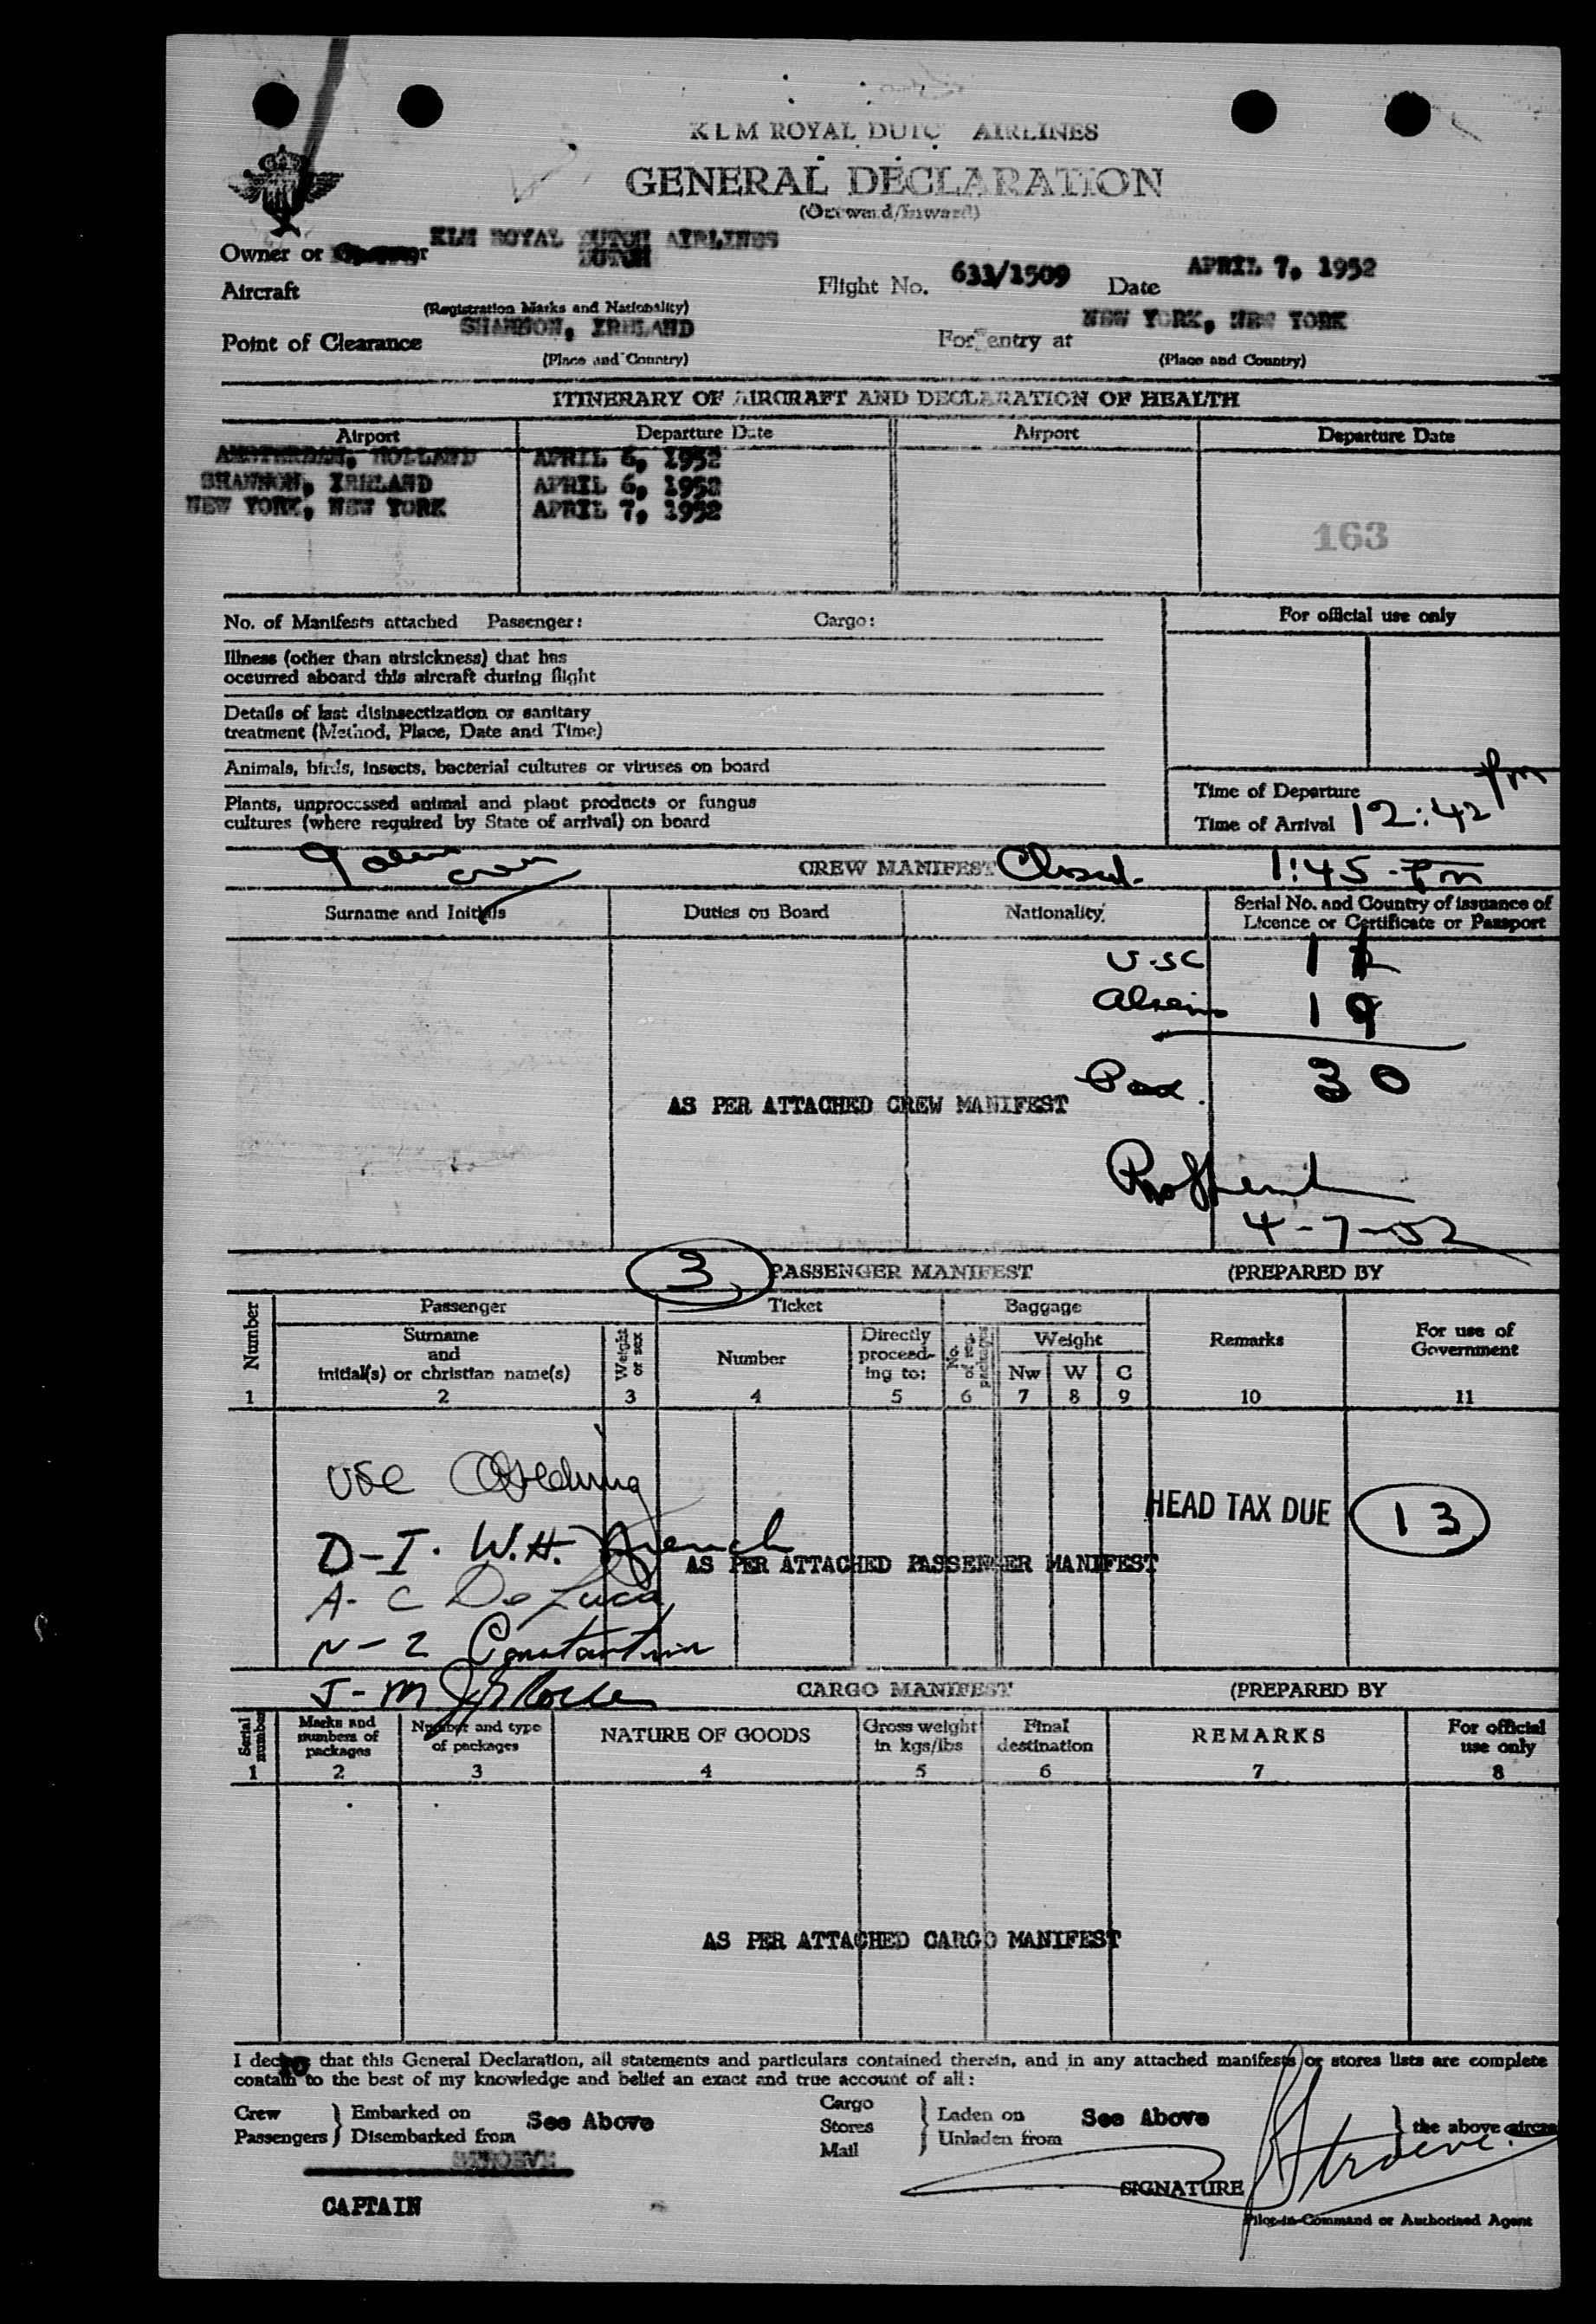 KLM ROYAL DUTC AIRLINES
GENERAL DECLARATION
(Outward/Inward)
KLM ROYAL DUTCH AIRLINES
Owner or
DUTCH
Aircraft
(Registration Marks and Nationality)
Flight No. 633/1509 Date APRIL 7, 1952
SHANNON, IRELAND
Point of Clearance
(Place and Country)
NEW YORK, NEW YORK
For entry at
(Place and Country)
ITINERARY OF AIRCRAFT AND DECLARATION OF HEALTH
Airport Departure Date Airport Departure Date
AMSTERDAM, HOLLAND APRIL 6, 1952
SHANNON, IRELAND APRIL 6, 1952
NEW YORK, NEW YORK APRIL 7, 1952
163
No. of Manifests attached Passenger: Cargo: For official use only
Illness (other than airsickness) that has
occurred aboard this aircraft during flight
Details of last disinsectization or sanitary
treatment (Method, Place, Date and Time)
Animals, birds, insects, bacterial cultures or viruses on board
Plants, unprocessed animal and plant products or fungus
cultures (where required by State of arrival) on board
Time of Departure
Time of Arrival 12:42 pm
CREW MANIFEST Closed. 1:45 - pm
Surname and Initials Duties on Board Nationality Serial No. and Country of issuance of
Licence or Certificate or Passport
U.S.C
19
Pax. 30
AS PER ATTACHED CREW MANIFEST
4-7-52
3 PASSENGER MANIFEST (PREPARED BY
Number Passenger Ticket Baggage Remarks For use of
Government
Surname
and
initial(s) or christian name(s)
Weight or sex
Number
Directly
proceed-
ing to:
No. of reg. packages
Weight
Nw W C
1 2 3 4 5 6 7 8 9 10 11
USC
HEAD TAX DUE 13
D-I. W.H. French
AS PER ATTACHED PASSENGER MANIFEST
A-C De Luca
N-Z Constantine
J-M
CARGO MANIFEST (PREPARED BY
Serial number
Marks and
numbers of
packages
Number and type
of packages
NATURE OF GOODS
Gross weight
in kgs/lbs
Final
destination
REMARKS
For official
use only
1 2 3 4 5 6 7 8
AS PER ATTACHED CARGO MANIFEST
I declare that this General Declaration, all statements and particulars contained therein, and in any attached manifests or stores lists are complete
contain to the best of my knowledge and belief an exact and true account of all:
Crew
Passengers
Embarked on
Disembarked from
See Above
Cargo
Stores
Mail
Laden on
Unladen from
See Above
the above aircra
STROEVE
CAPTAIN
SIGNATURE Stroeve.
Pilot-in-Command or Authorised Agent